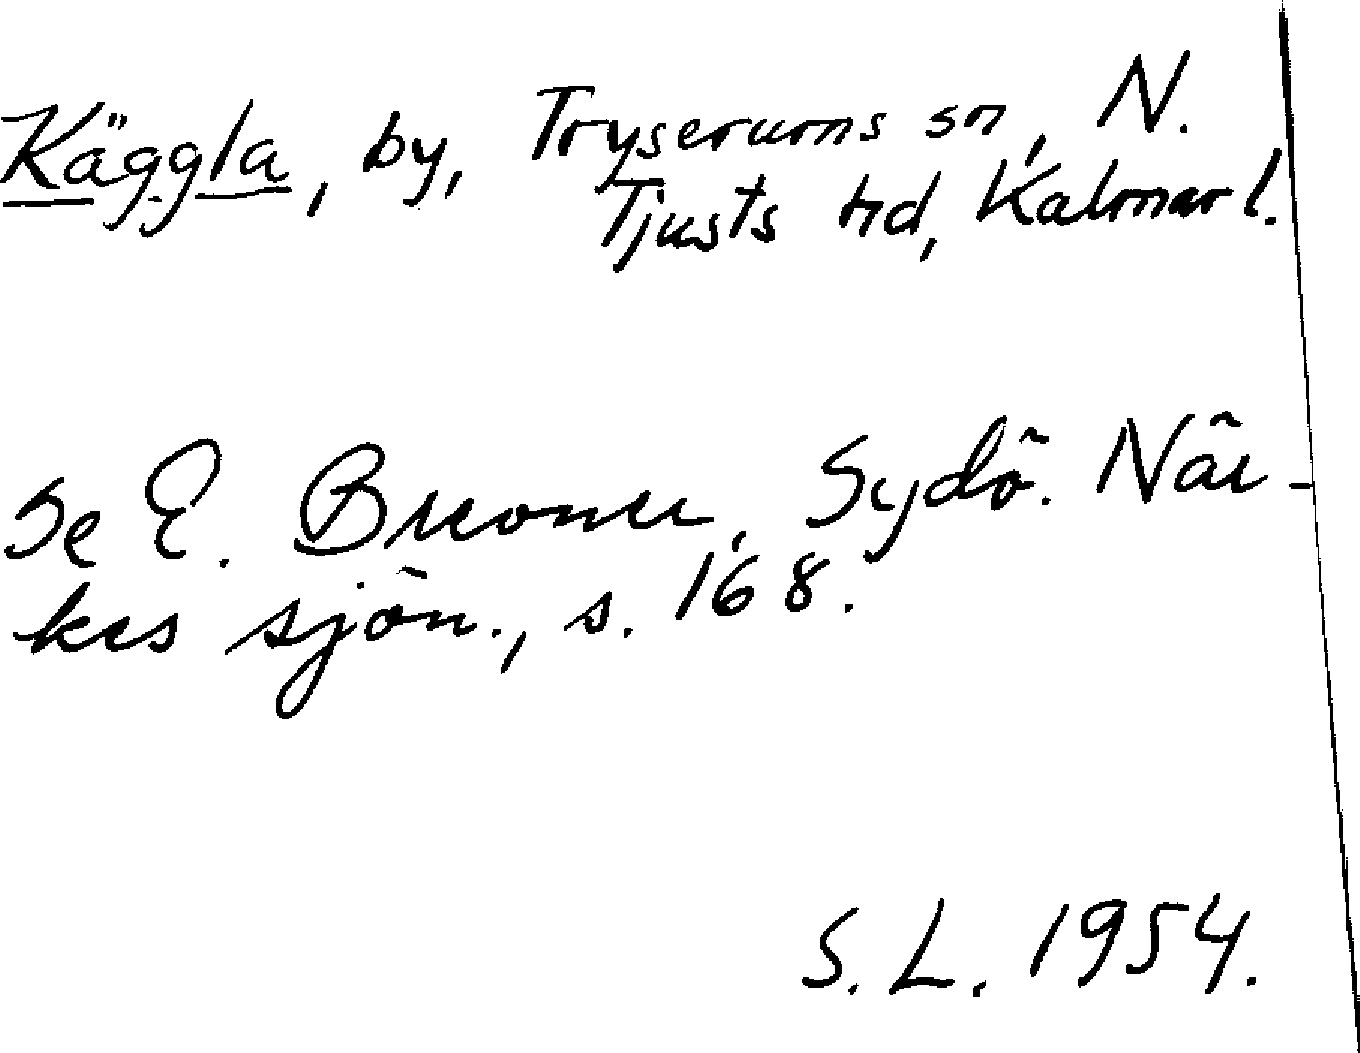 Käggla, by, Tryserums sn, N.
Tjusts hd, Kalmar l.
Se E. Brevner, Sydö. När-
kes sjön., s. 168.
S. L. 1954.